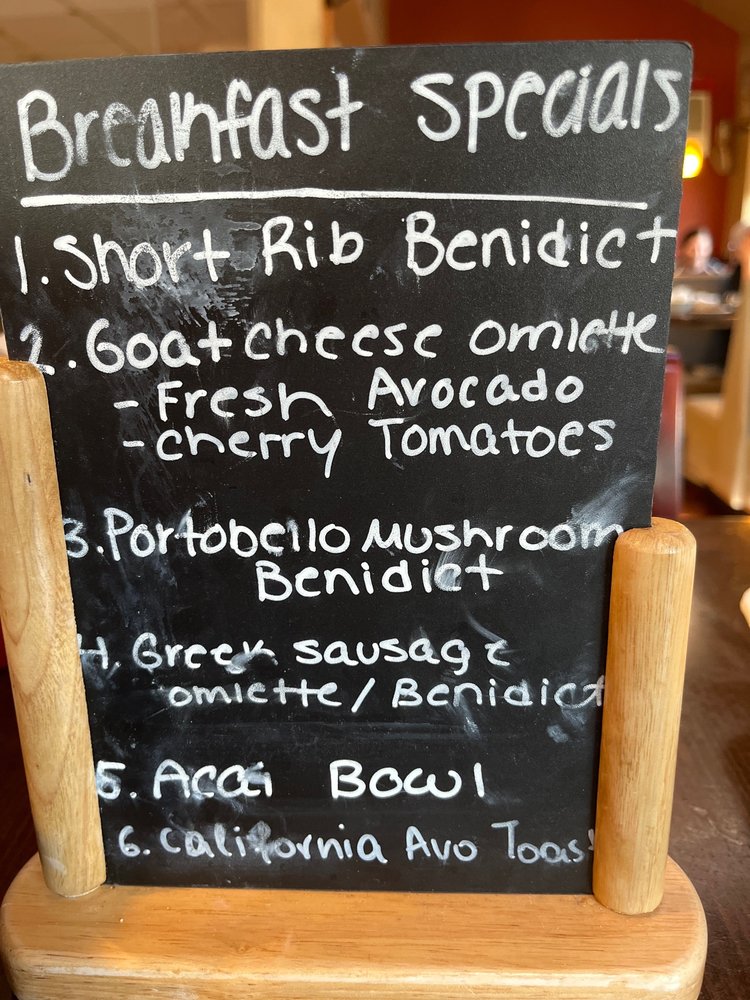 Breakfast specials
1. Short Rib Benidict
2. Goat cheese omlette
- Fresh Avocado
- cherry Tomatoes
3. Portobello Mushroom
Benidict
4. Greek sausage
omlette / Benidict
5. Acai Bowl
6. California Avo Toast